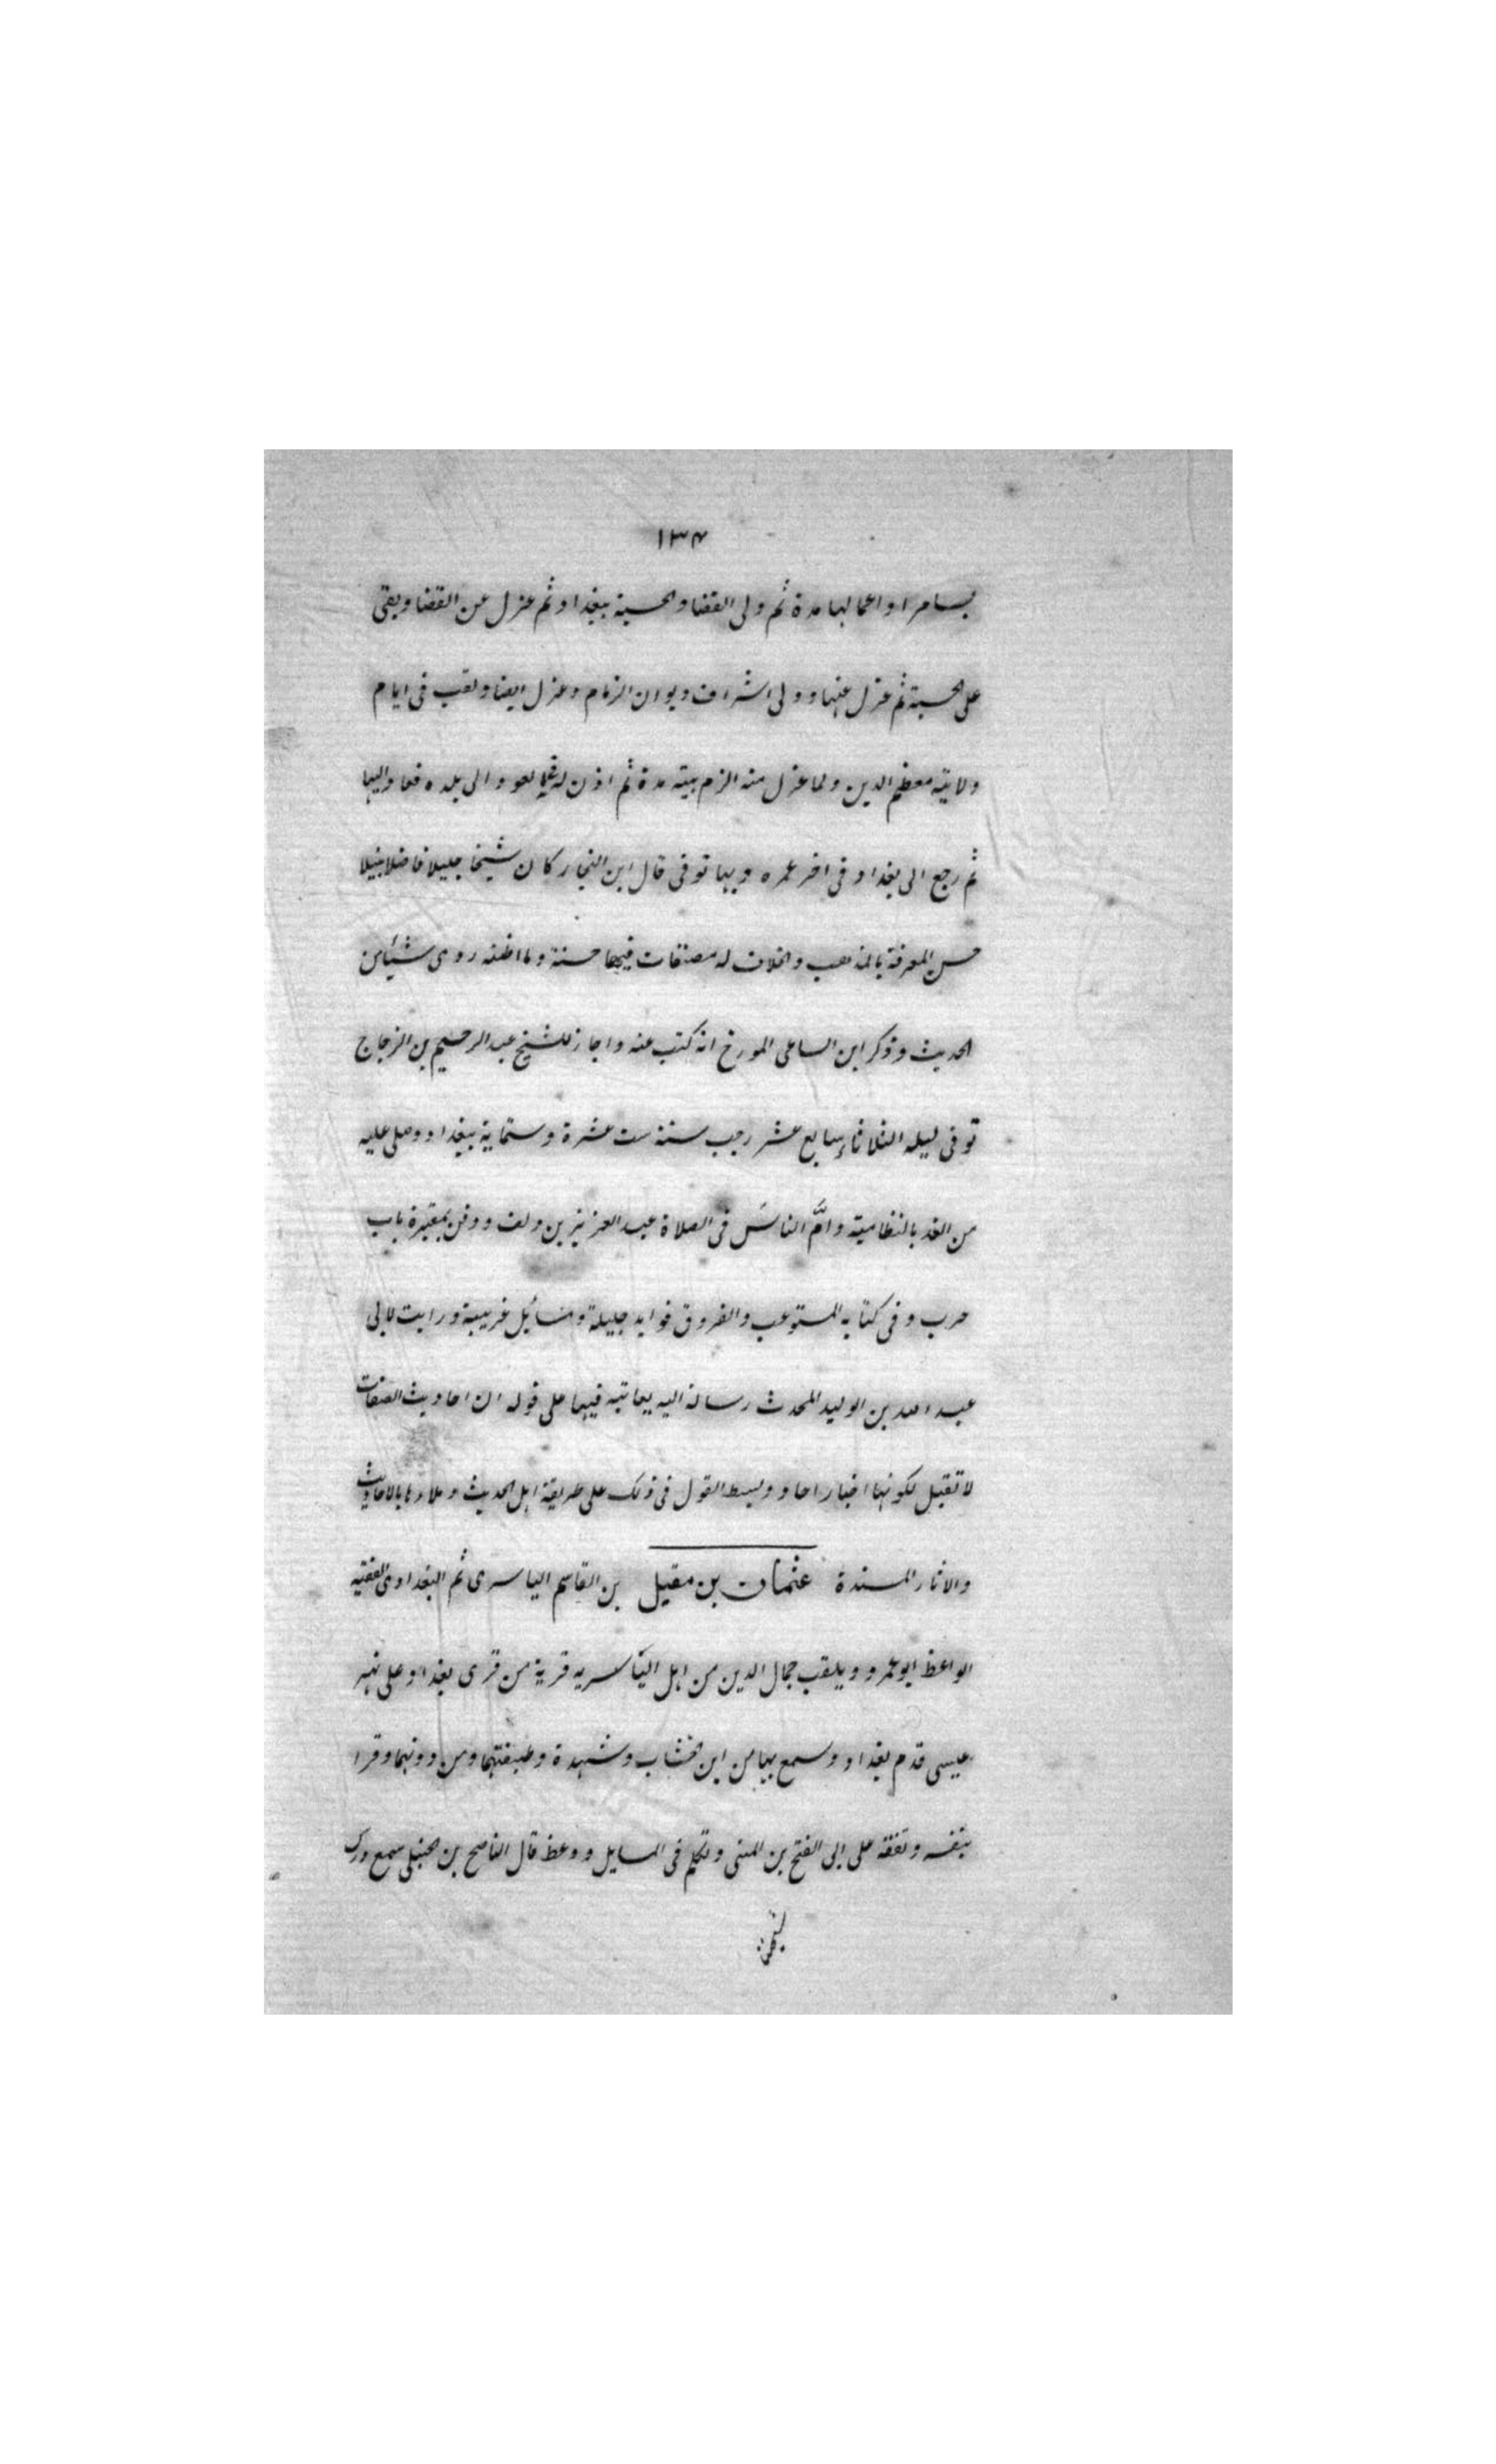 ١٣٤
بسامرا واعمالها مدة ثم ولى القضا والحسبة ببغداد ثم عزل عن القضا وبقى
على الحسبة ثم عزل عنها وولى اشراف ديوان الزمام وعزل ايضا ولقب فى ايام
ولايته معظم الدين ولما عزل منه الزم بيته مدة ثم اذن له فى العود الى بلده فعاد اليها
ثم رجع الى بغداد فى اخر عمره وبها توفى قال ابن النجار كان شيخا جليلا فاضلا نبيلا
حسن المعرفة بالمذهب والخلاف له مصنفات فيهما حسنة وما اظنه روى شيئا من
الحديث وذكر ابن الساعى المورخ انه كتب عنه واجاز للشيخ عبد الرحيم بن الزجاج
توفى ليله الثلاثاء سابع عشر رجب سنة ست عشرة وستماية ببغداد وصلى عليه
من الغد بالنظامية وامَّ الناسَ فى الصلاة عبد العزيز بن دلف ودفن بمقبرة باب
حرب وفى كتابه المستوعب والفروق فوايد جليلة ومسائل غريبة ورايت لابى
عبد الله بن الوليد المحدث رسالة اليه يعاتبه فيها على قوله ان احاديث الصفات
لا تقبل لكونها اخبار احاد وبسط القول فى ذلك على طريقة اهل الحديث وملاءها بالاحاديث
والاثار المسندة عثمان بن مقبل بن القاسم الياسرى ثم البغدادى الفقيه
الواعظ ابو عمرو ويلقب جمال الدين من اهل الياسريه قرية من قرى بغداد على نهر
عيسى قدم بغداد وسمع بها من ابن الخشاب وشهدة وطبقتهما ومن دونهما وقرا
بنفسه وتفقه على ابى الفتح بن المنى وتكلم فى المسايل ووعظ قال الناصح بن حنبلى سمع درس